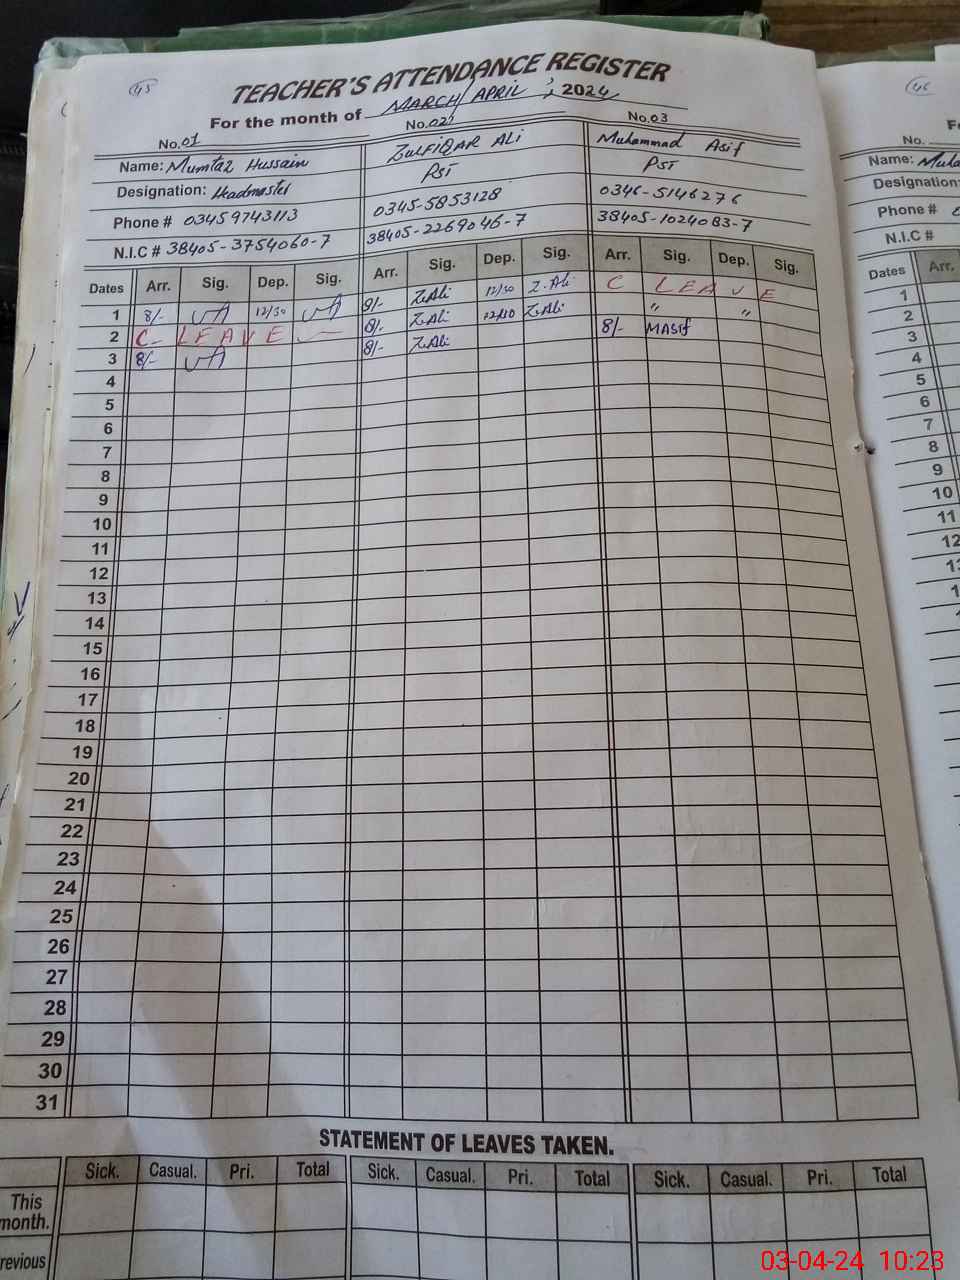 45
TEACHER'S ATTENDANCE REGISTER
For the month of MARCH/APRIL, 2024
No.01 No.02 No.03
Name: Mumtaz Hussain ZULFIQAR ALi Muhammad Asif
Designation: Headmaster PST PST
Phone # 03459743113 0345-5853128 0346-5146276
N.I.C # 38405-3754060-7 38405-2269046-7 38405-1024083-7
Dates Arr. Sig. Dep. Sig. Arr. Sig. Dep. Sig. Arr. Sig. Dep. Sig.
1 8/- 12/30 8/- Z.Ali 12/30 Z.Ali C LEAVE
2 C- LEAVE 8/- Z.Ali Z.Ali " "
3 8/- 8/- Z.Ali 8/- MAsif
4
5
6
7
8
9
10
11
12
13
14
15
16
17
18
19
20
21
22
23
24
25
26
27
28
29
30
31
STATEMENT OF LEAVES TAKEN.
Sick. Casual. Pri. Total Sick. Casual. Pri. Total Sick. Casual. Pri. Total
This
month.
revious
46
No.
Name: Muha
Designation:
Phone #
N.I.C #
Dates Arr.
1
2
3
4
5
6
7
8
9
10
11
12
03-04-24 10:23